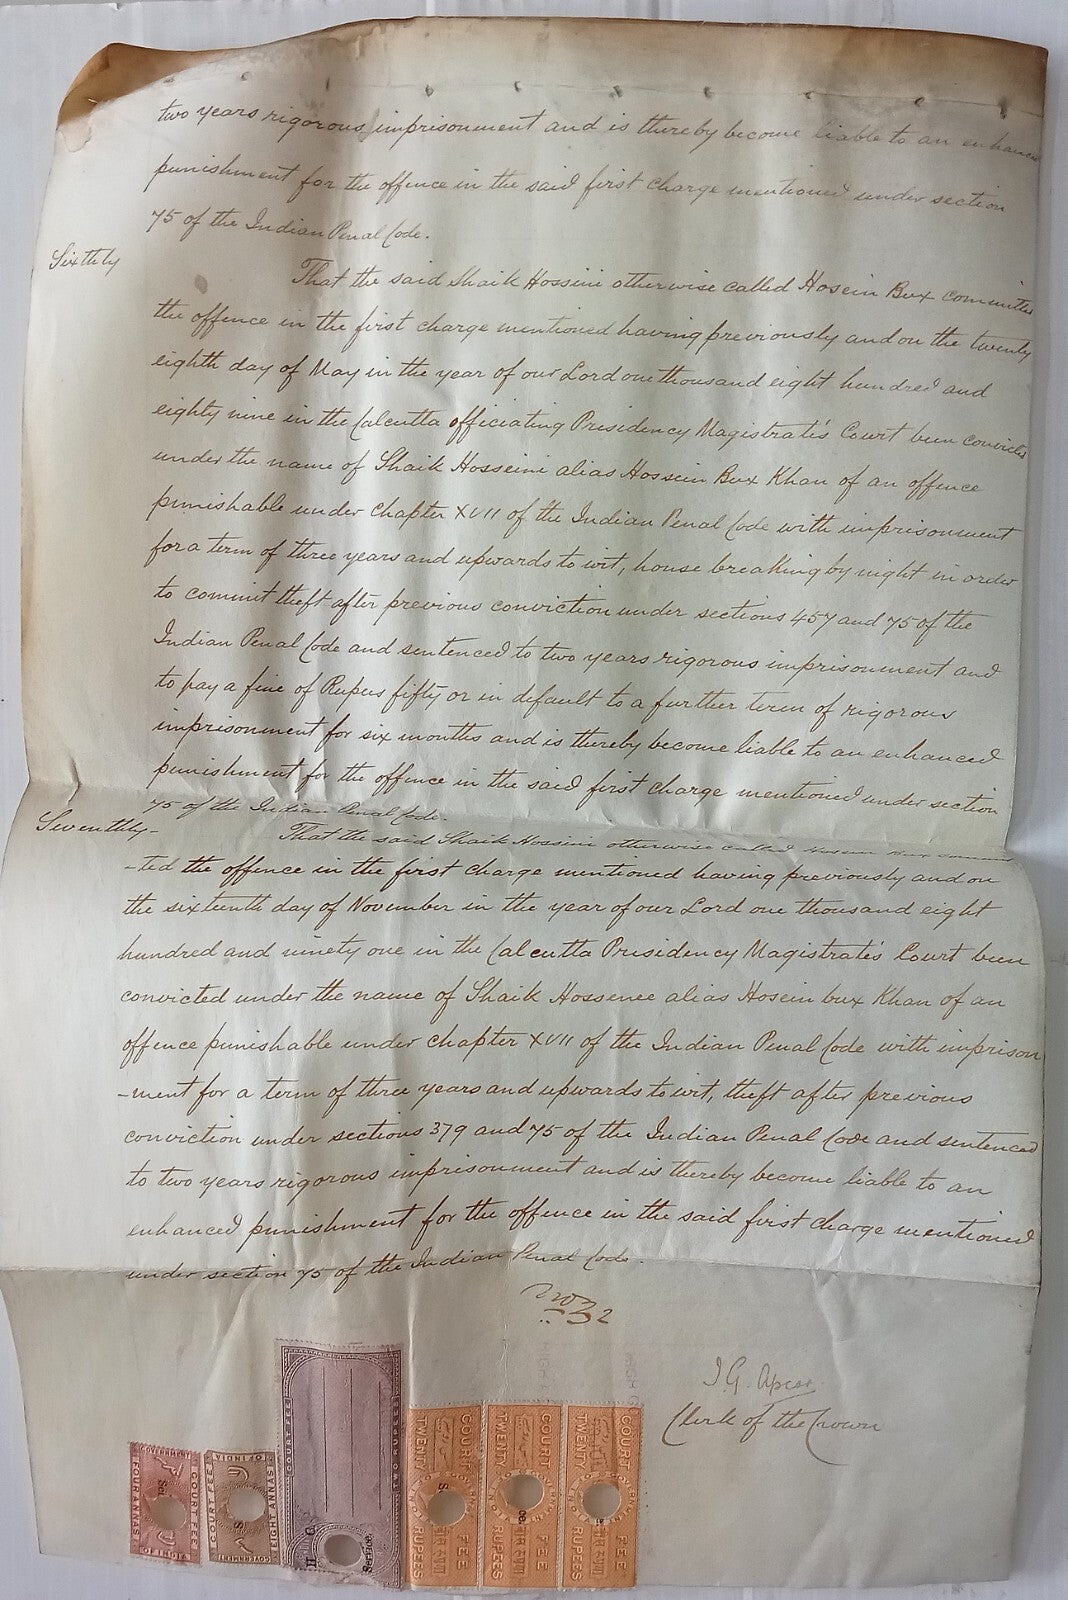 two years rigorous imprisonment and is thereby become liable to an enhanced
punishment for the offence in the said first charge mentioned under section
75 of the Indian Penal Code.
Sixthly
That the said Shaik Hossini otherwise called Hosein Bux committed
the offence in the first charge mentioned having previously and on the twenty
eighth day of May in the year of our Lord one thousand eight hundred and
eighty nine in the Calcutta officiating Presidency Magistrate's Court been convicted
under the name of Shaik Hosseini alias Hossein Bux Khan of an offence
punishable under chapter XVII of the Indian Penal Code with imprisonment
for a term of three years and upwards to wit, house breaking by night in order
to commit theft after previous conviction under sections 457 and 75 of the
Indian Penal Code and sentenced to two years rigorous imprisonment and
to pay a fine of Rupees fifty or in default to a further term of rigorous
imprisonment for six months and is thereby become liable to an enhanced
punishment for the offence in the said first charge mentioned under section
75 of the Indian Penal Code.
Seventhly-
That the said Shaik Hossini otherwise called Hosein Bux commit
-ted the offence in the first charge mentioned having previously and on
the sixteenth day of November in the year of our Lord one thousand eight
hundred and ninety one in the Calcutta Presidency Magistrate's Court been
convicted under the name of Shaik Hossenee alias Hosein bux Khan of an
offence punishable under chapter XVII of the Indian Penal Code with imprison
-ment for a term of three years and upwards to wit, theft after previous
conviction under sections 379 and 75 of the Indian Penal Code and sentenced
to two years rigorous imprisonment and is thereby become liable to an
enhanced punishment for the offence in the said first charge mentioned
under section 75 of the Indian Penal Code.
J. G. Apcar
Clerk of the Crown
GOVERNMENT OF INDIA
COURT FEE
FOUR ANNAS
GOVERNMENT OF INDIA
COURT FEE
EIGHT ANNAS
COURT FEE
TWO RUPEES
H C
Service
COURT FEE
TWENTY RUPEES
COURT FEE
TWENTY RUPEES
COURT FEE
TWENTY RUPEES